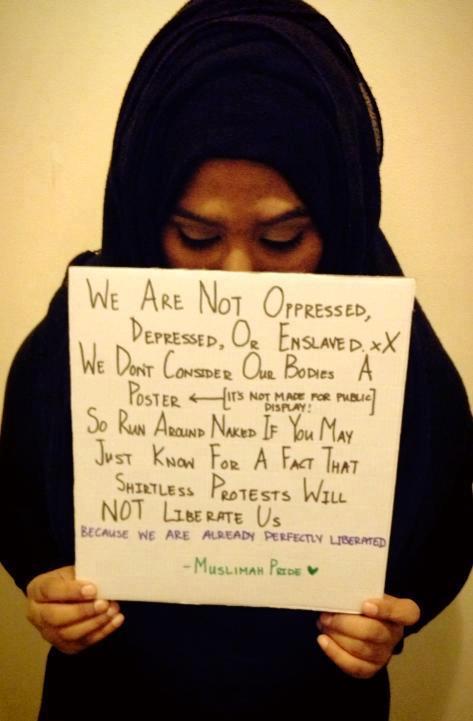 We Are Not Oppressed,
Depressed, Or Enslaved. xX
We Dont Consider Our Bodies A
Poster ← [It's not made for public
display!]
So Run Around Naked If You May
Just Know For A Fact That
Shirtless Protests Will
NOT Liberate Us
because we are already perfectly liberated
- Muslimah Pride ♥